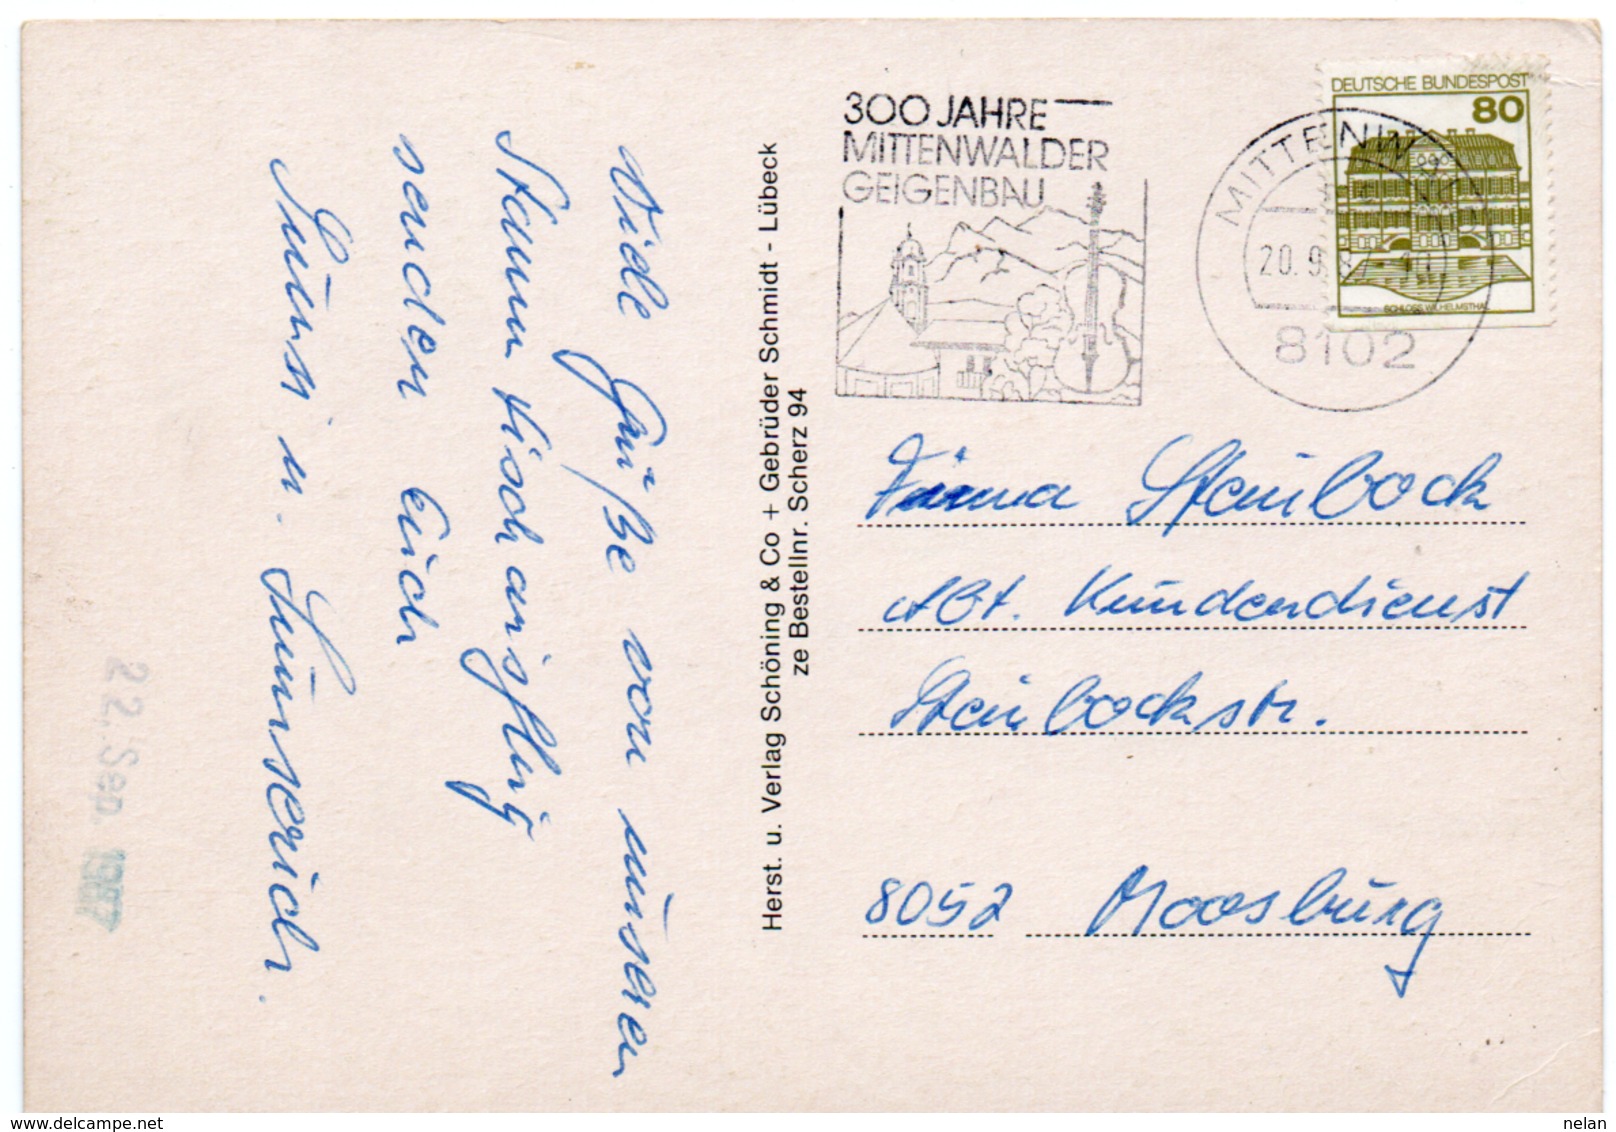 Viele Grüße von unserem
Stammtischausflug
senden Euch
u.
22. Sep. 1987
Herst. u. Verlag Schöning & Co + Gebrüder Schmidt - Lübeck
ze Bestellnr. Scherz 94
300 JAHRE
MITTENWALDER
GEIGENBAU
MITTENW
20. 9. 87
8102
DEUTSCHE BUNDESPOST
80
SCHLOSS WILHELMSTHAL
Firma Steinbock
Abt. Kundendienst
Steinbockstr.
8052 Moosburg
delcampe.net
nelan